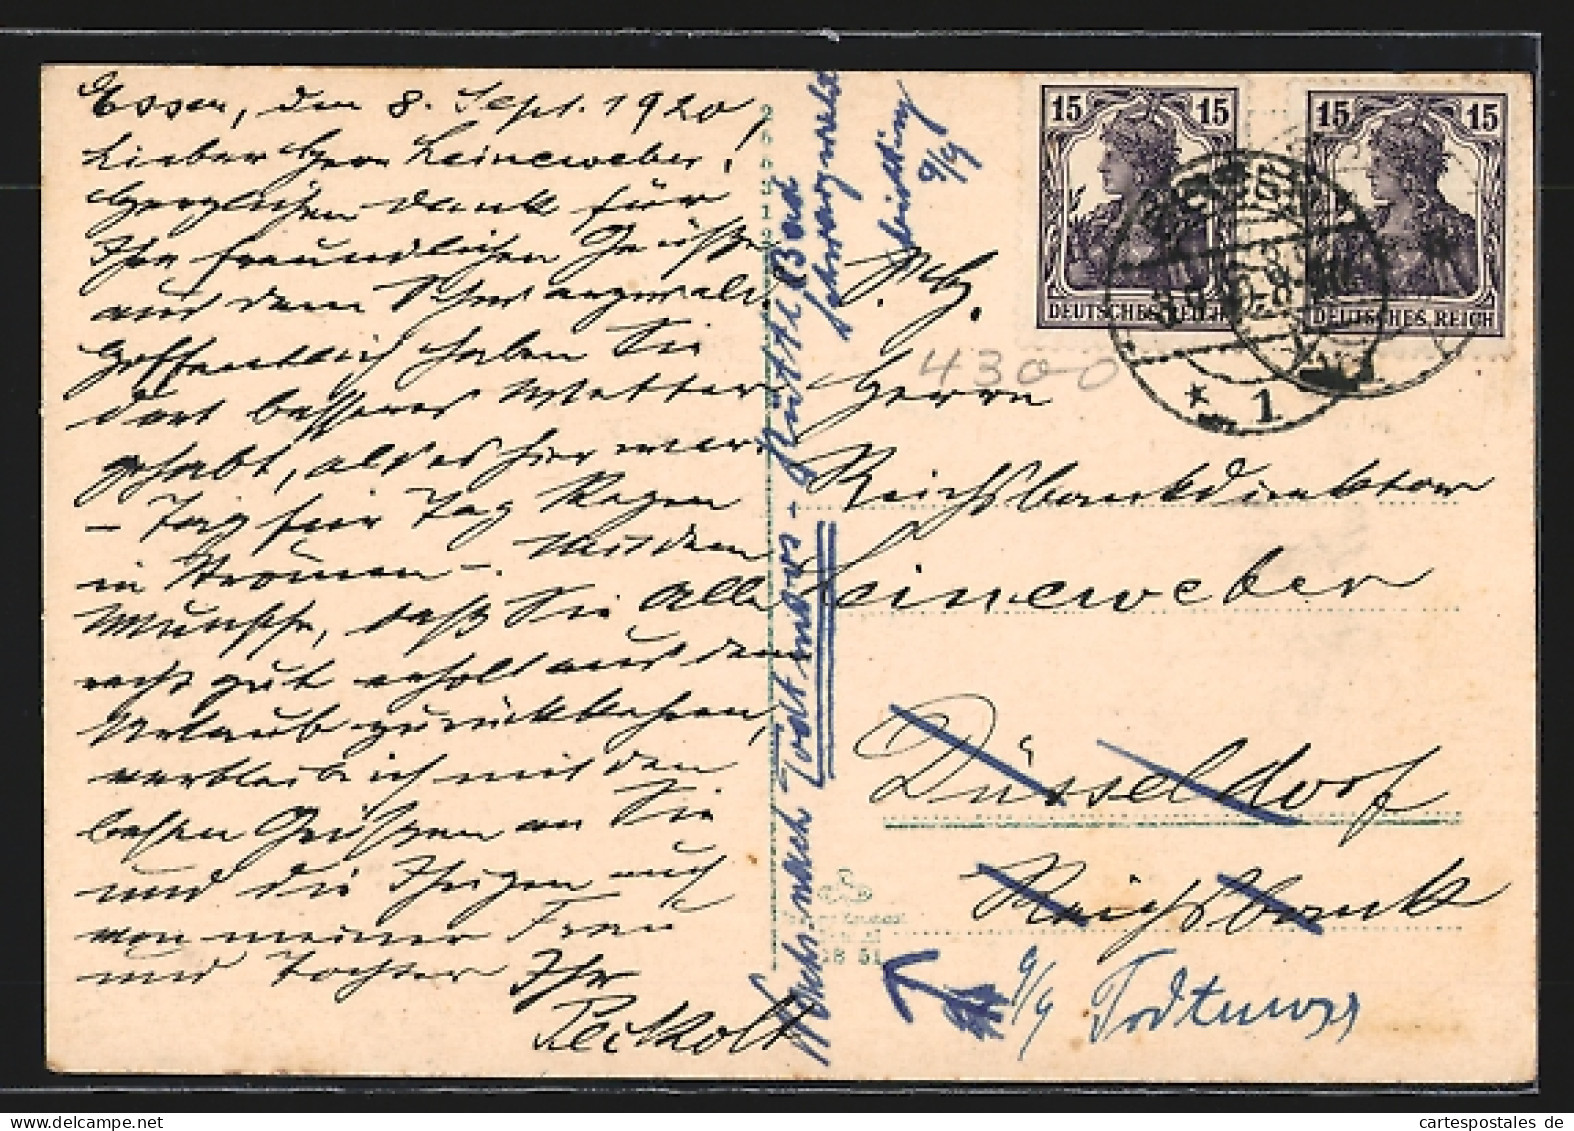 Essen, den 8. Sept. 1920
Lieber Herr Leineweber!
Herzlichen Dank für
Ihre freundlichen Grüße
aus dem Schwarzwald.
Hoffentlich haben Sie
dort besseres Wetter
gehabt, als es hier war.
- Tag für Tag Regen
in Strömen -. Mit dem
Wunsche, daß Sie alle
recht gut erholt aus dem
Urlaub zurückkehren,
verbleibe ich mit den
besten Grüßen an Sie
und die Ihrigen auch
von meiner Frau
und Tochter Ihr
15 15
DEUTSCHES REICH
15 15
DEUTSCHES REICH
* 1
4300
Herrn
Reichsbankdirektor
Leineweber
Düsseldorf
Reichsbank
9/9 Todtmoos
nach Todtmoos - Hütte Bad
9/9
cartespostales de